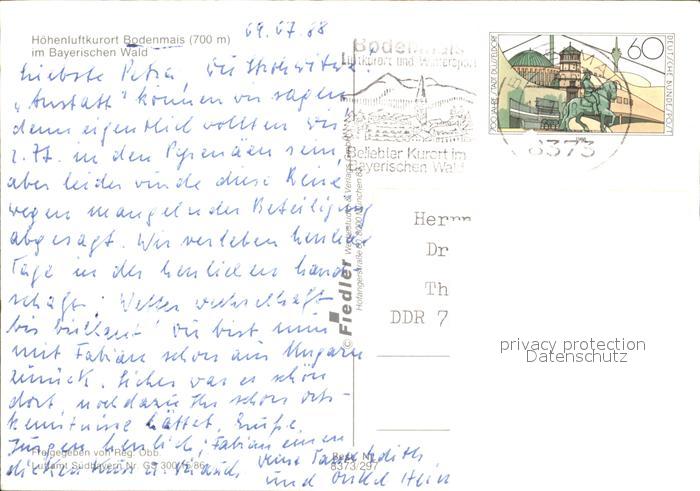 Höhenluftkurort Bodenmais (700 m)
im Bayerischen Wald
09.07.88
Liebste Petra, die Strohwitwe
"Anstatt" können wir sagen,
denn eigentlich wollten wir
z. Zt. in den Pyrenäen sein,
aber leider wurde diese Reise
wegen mangelnder Beteiligung
abgesagt. Wir verleben herrliche
Tage in der herrlichen Land-
schaft. Wetter wechselhaft
bis brillant! Du bist nun
mit Fabian schon aus Ungarn
zurück. Sicher war es schön
dort, noch dazu Ihr schon Orts-
kenntnisse hattet. Grüße
Jürgen herzlich, Fabian einen
dicken Kuss u. Dich auch
Deine Tante Edith
und Onkel Hein
Freigegeben von Reg. Obb.
Luftamt Südbayern Nr. GS 300
Best. Nr.
8373/297
© Fiedler
Bodenmais
Luftkurort und Wintersport
Beliebter Kurort im
Bayerischen Wald
8373
700 JAHRE STADT DÜSSELDORF
60
DEUTSCHE BUNDESPOST
1988
Herrn
Dr
Th
DDR 7
privacy protection
Datenschutz